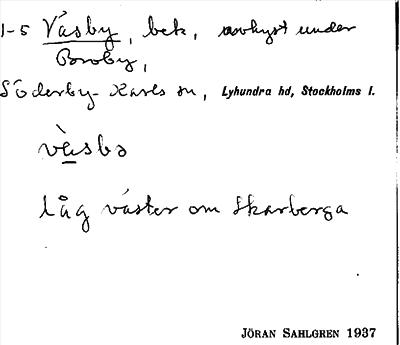 1-5 Väsby, bek, avhyst under
Broby,
Söderby-Karls sn, Lyhundra hd, Stockholms l.
väsbə
låg väster om Skarberga
JÖRAN SAHLGREN 1937